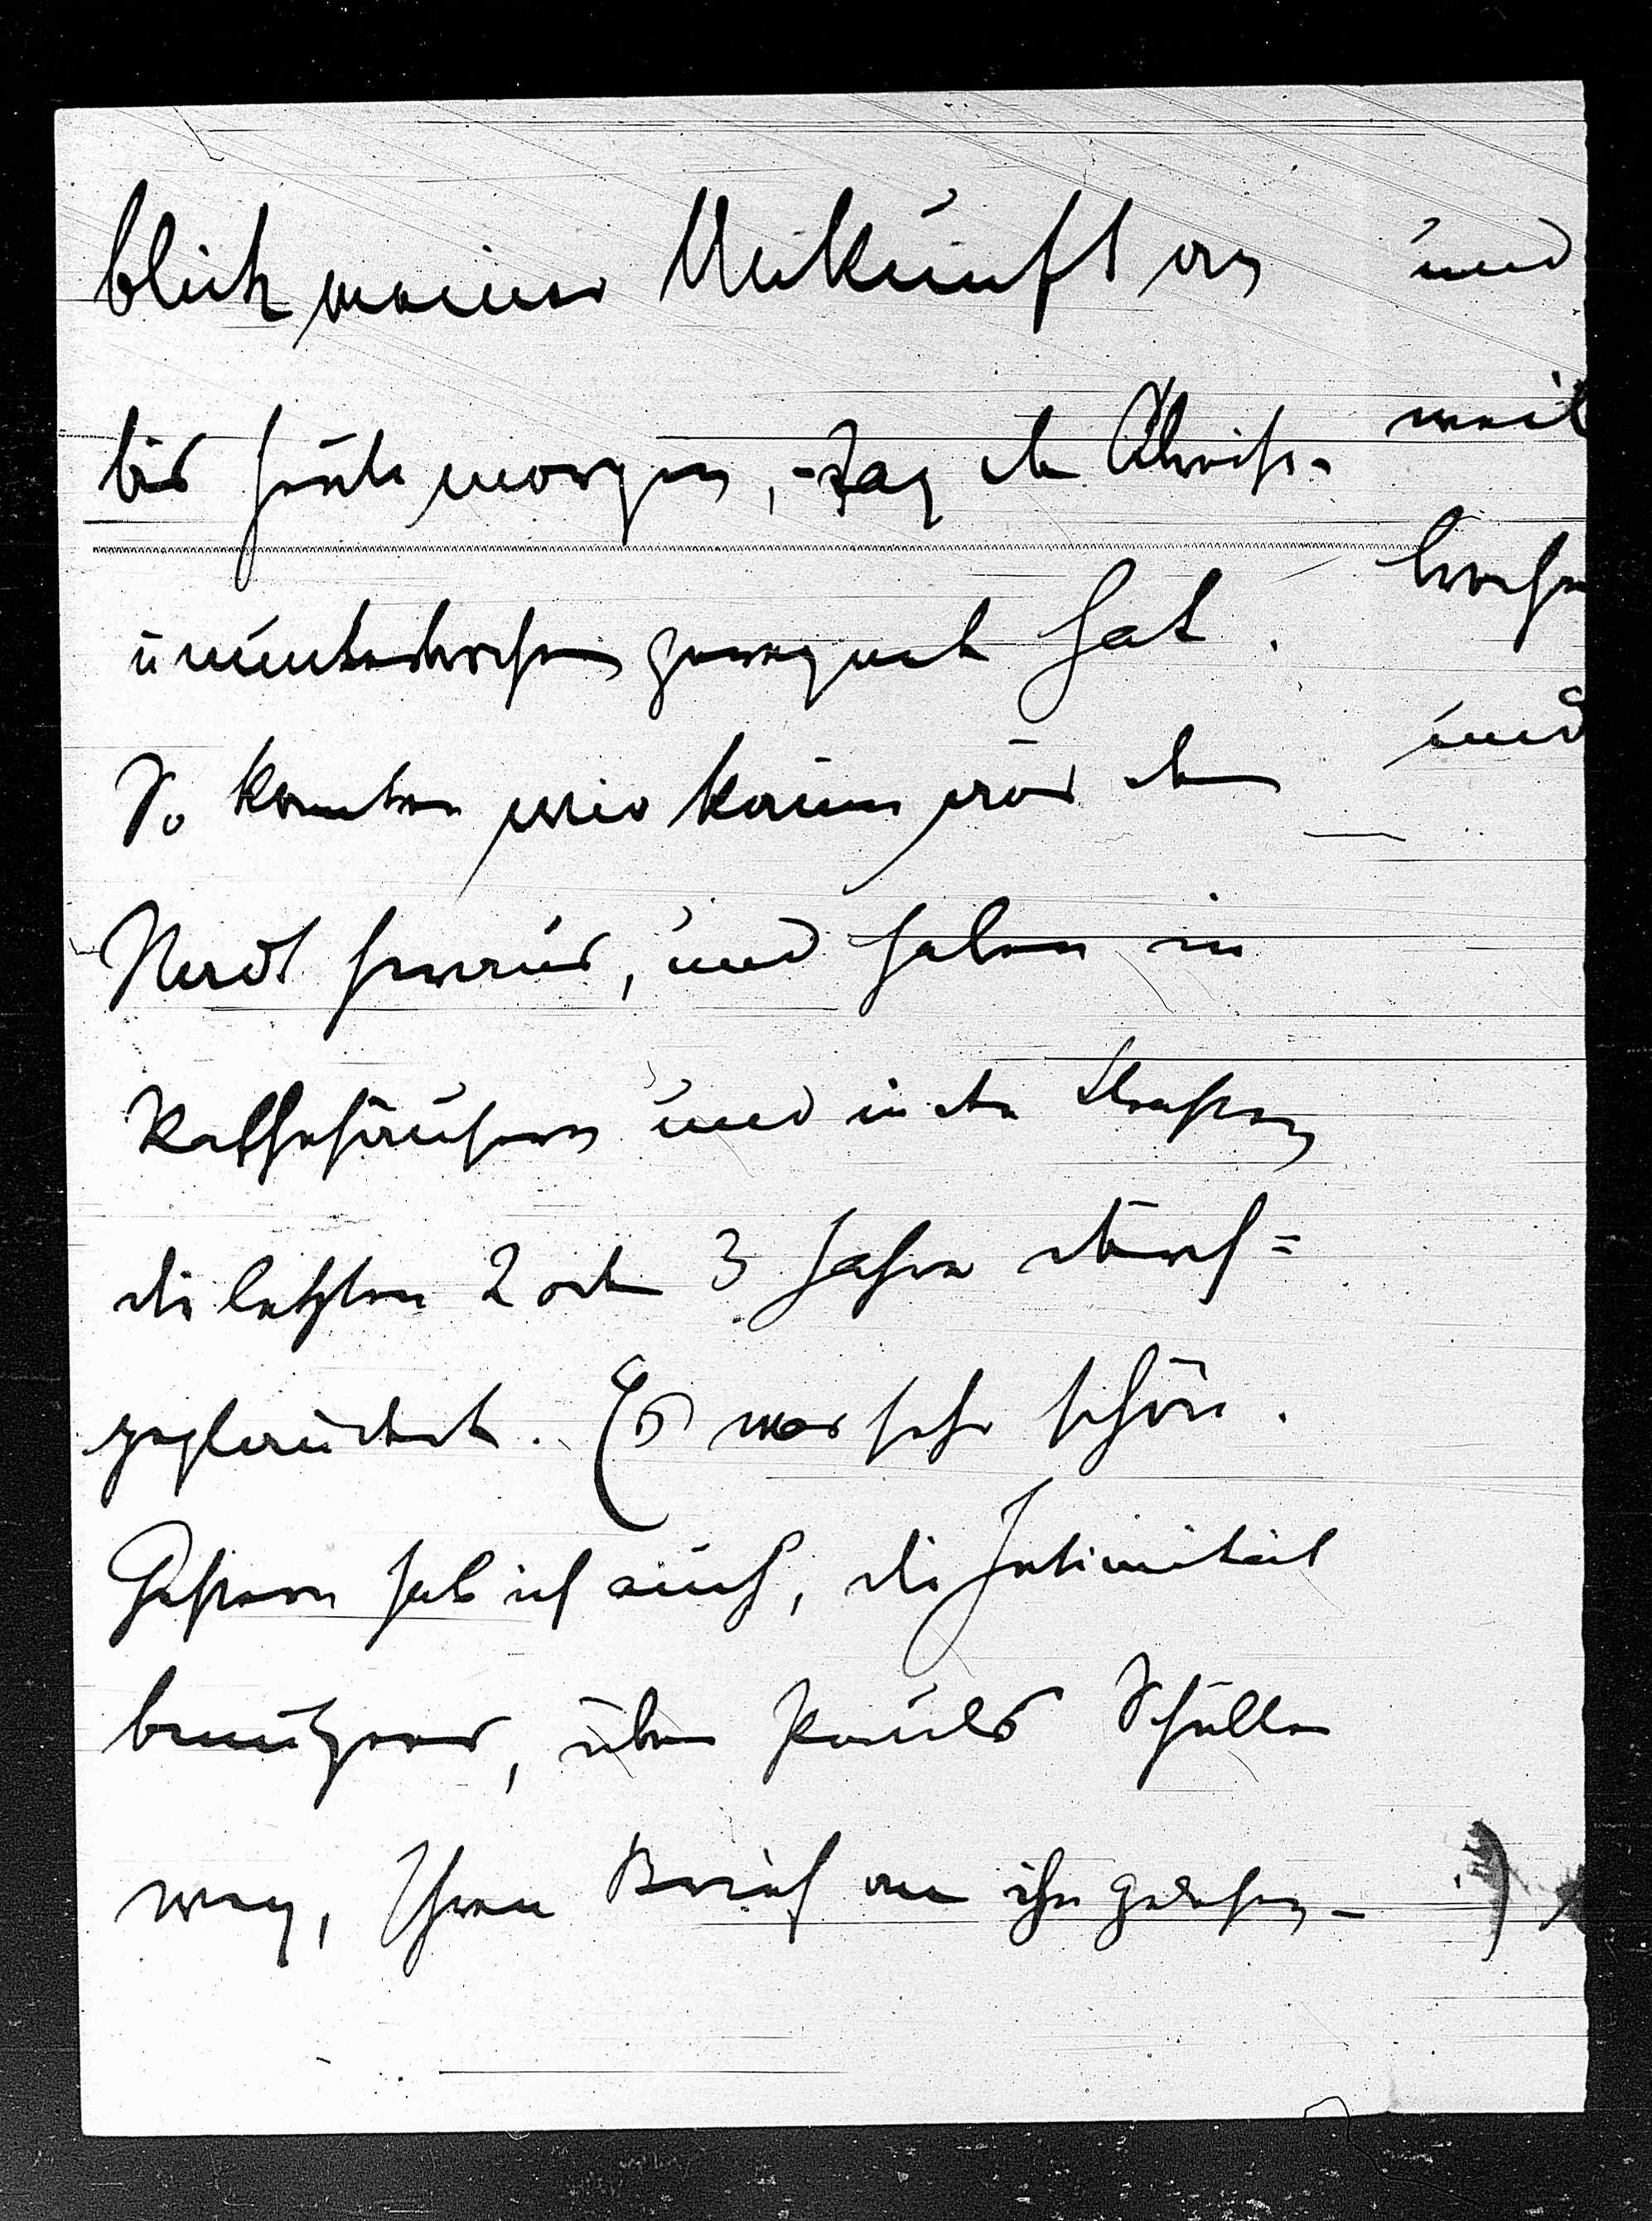 blick meiner Ankunft an
bis heute morgen, -Tag der Abreise-
ununterbrochen geregnet hat.
So konnten wir kaum aus der
Stadt heraus, und haben in
Kaffehäusern und in den Strassen
die letzten 2 oder 3 Jahre durch=
geplaudert. Es war sehr schön.
Gestern hab ich auch, die Intimität
benutzend, über Pauls Schulter
weg, Ihren Brief an ihn gelesen_
und
weil
und